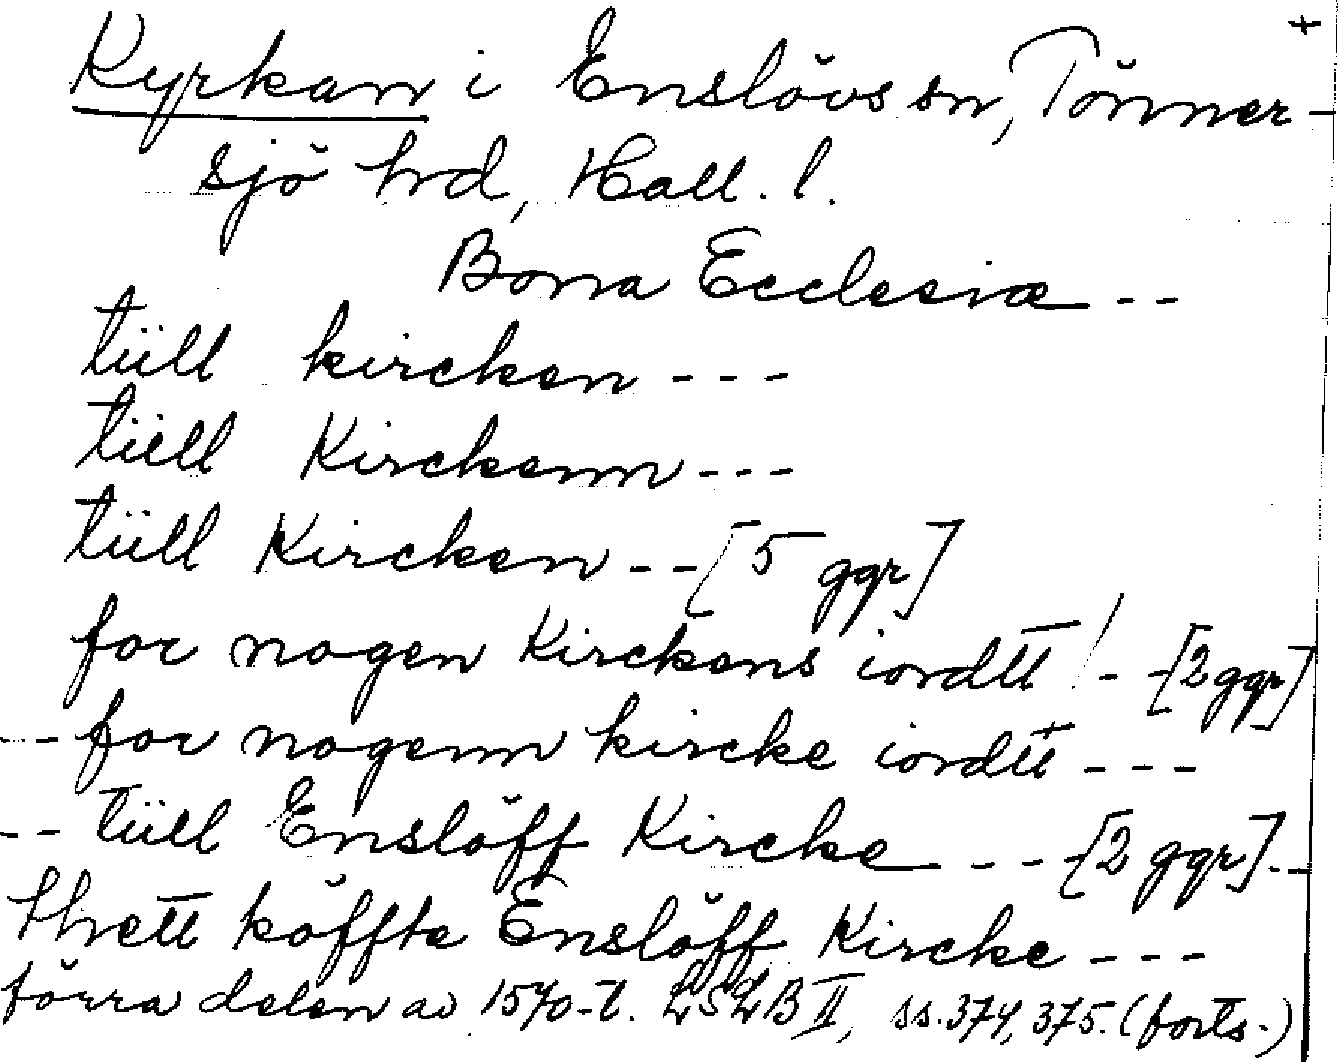 +
Kyrkan i Enslövs sn, Tönner-
sjö hrd, Hall. l.
Bona Ecclesiæ --
tüll kircken ---
tüll Kirckenn ---
tüll Kircken -- [5 ggr]
for nogen Kirckens iordtt! - - [2 ggr]
-- for nogenn kircke iordtt ---
-- tüll Enslöff Kircke --- [2 ggr] --
thett köffte Enslöff Kircke ---
förra delen av 1570-t. LSLB II, ss. 374, 375. (forts.)